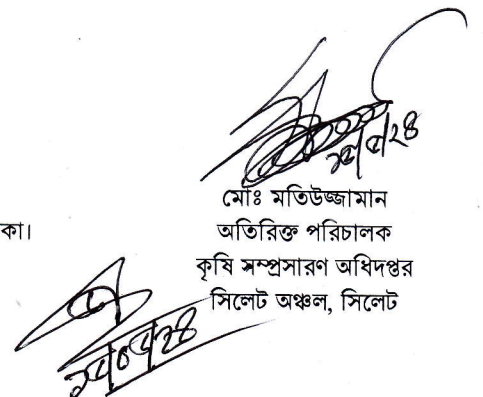 মোঃ মতিউজ্জামান
অতিরিক্ত পরিচালক
কা।
কৃষি সম্প্রসারণ অধিদপ্তর
সিলেট অঞ্চল, সিলেট